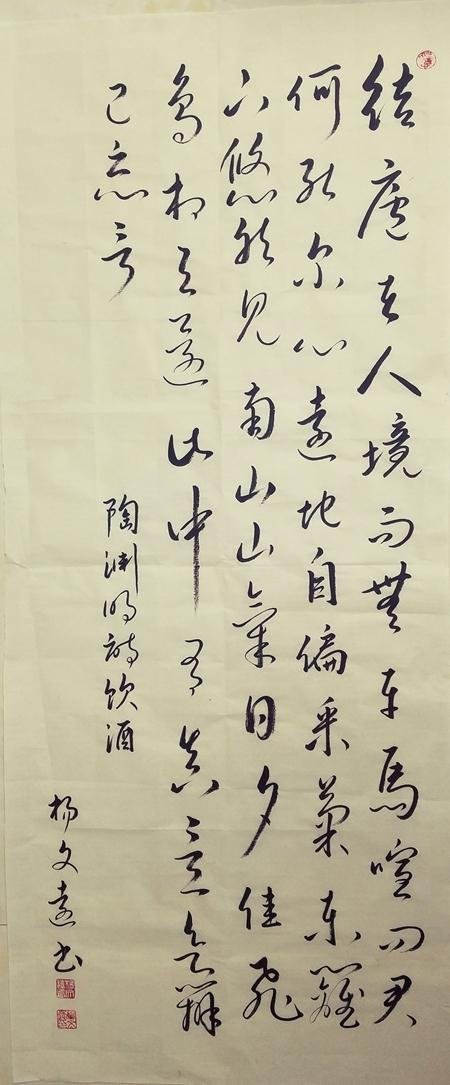 结庐在人境而無车馬喧问君
何能尔心遠地自偏采菊东籬
下悠然见南山山氣日夕佳飛
鸟相与还此中有真意欲辨
已忘言
陶渊明诗饮酒
杨文远书